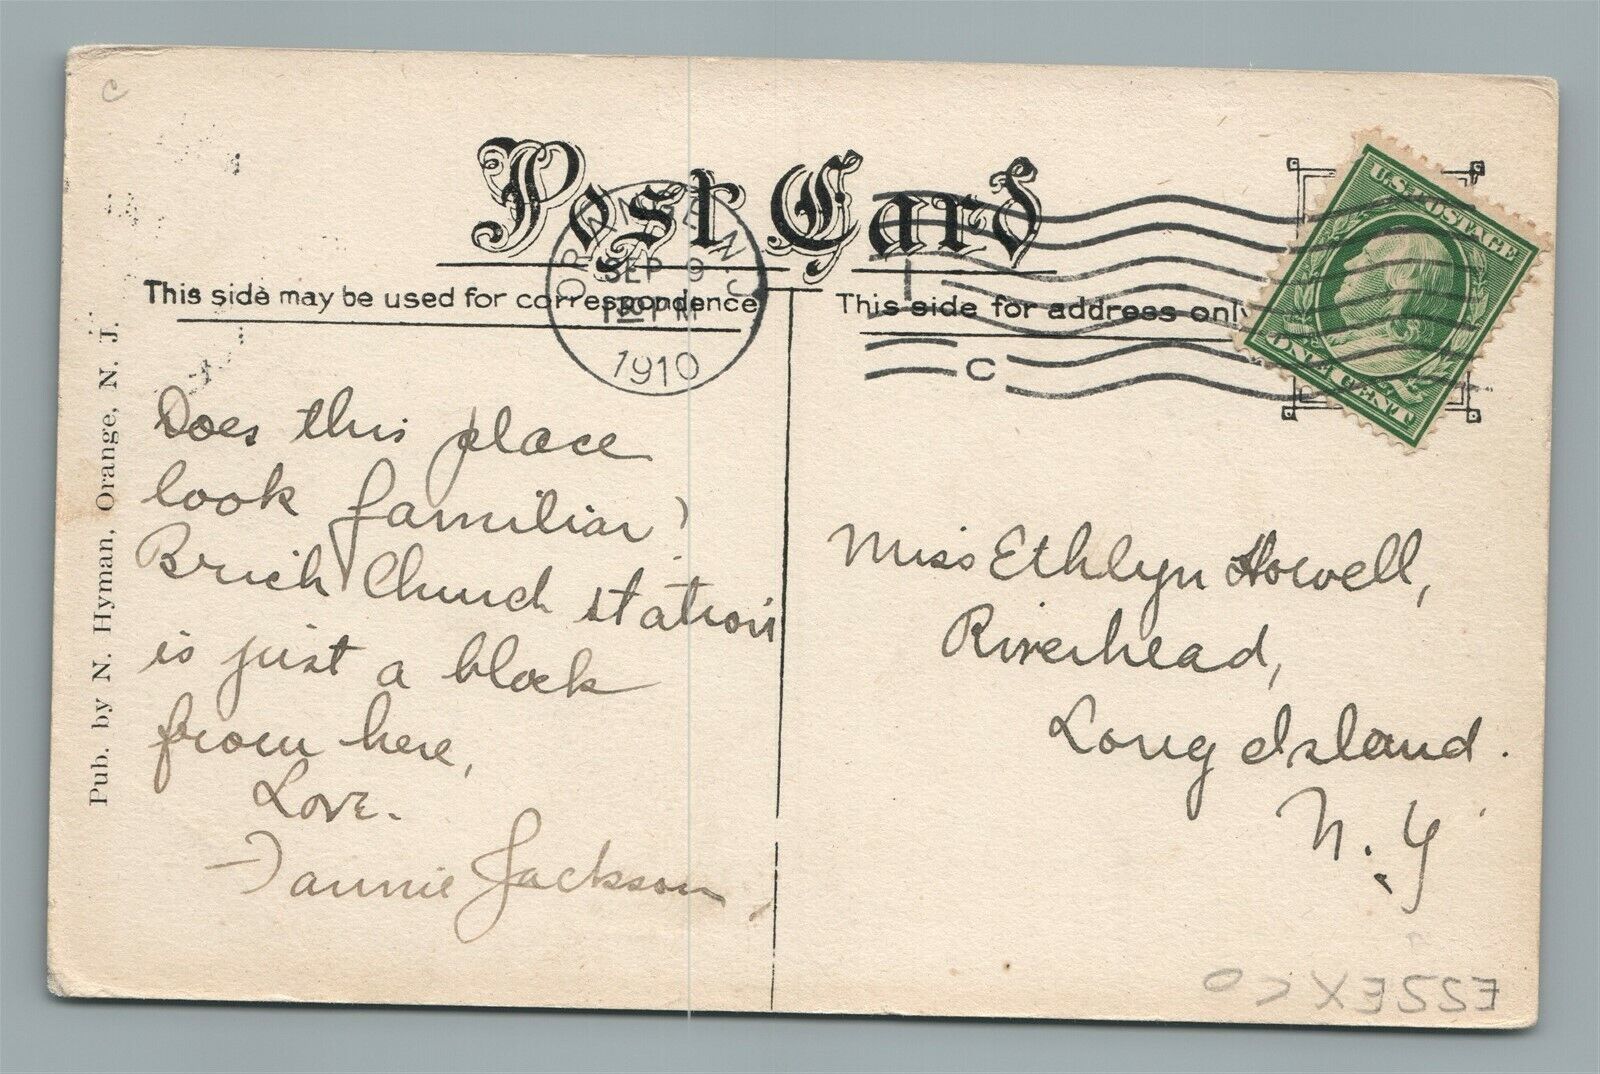 C
Post Card
ORANGE N.J.
SEP 9
1910
C
U.S. POSTAGE
ONE CENT
This side may be used for correspondence
This side for address only
Pub. by N. Hyman, Orange, N. J.
Does this place
look familiar?
Brick Church station
is just a block
from here,
Love.
Fannie Jackson
Miss Ethlyn Howell,
Riverhead,
Long Island.
N.Y.
ESSEX CO